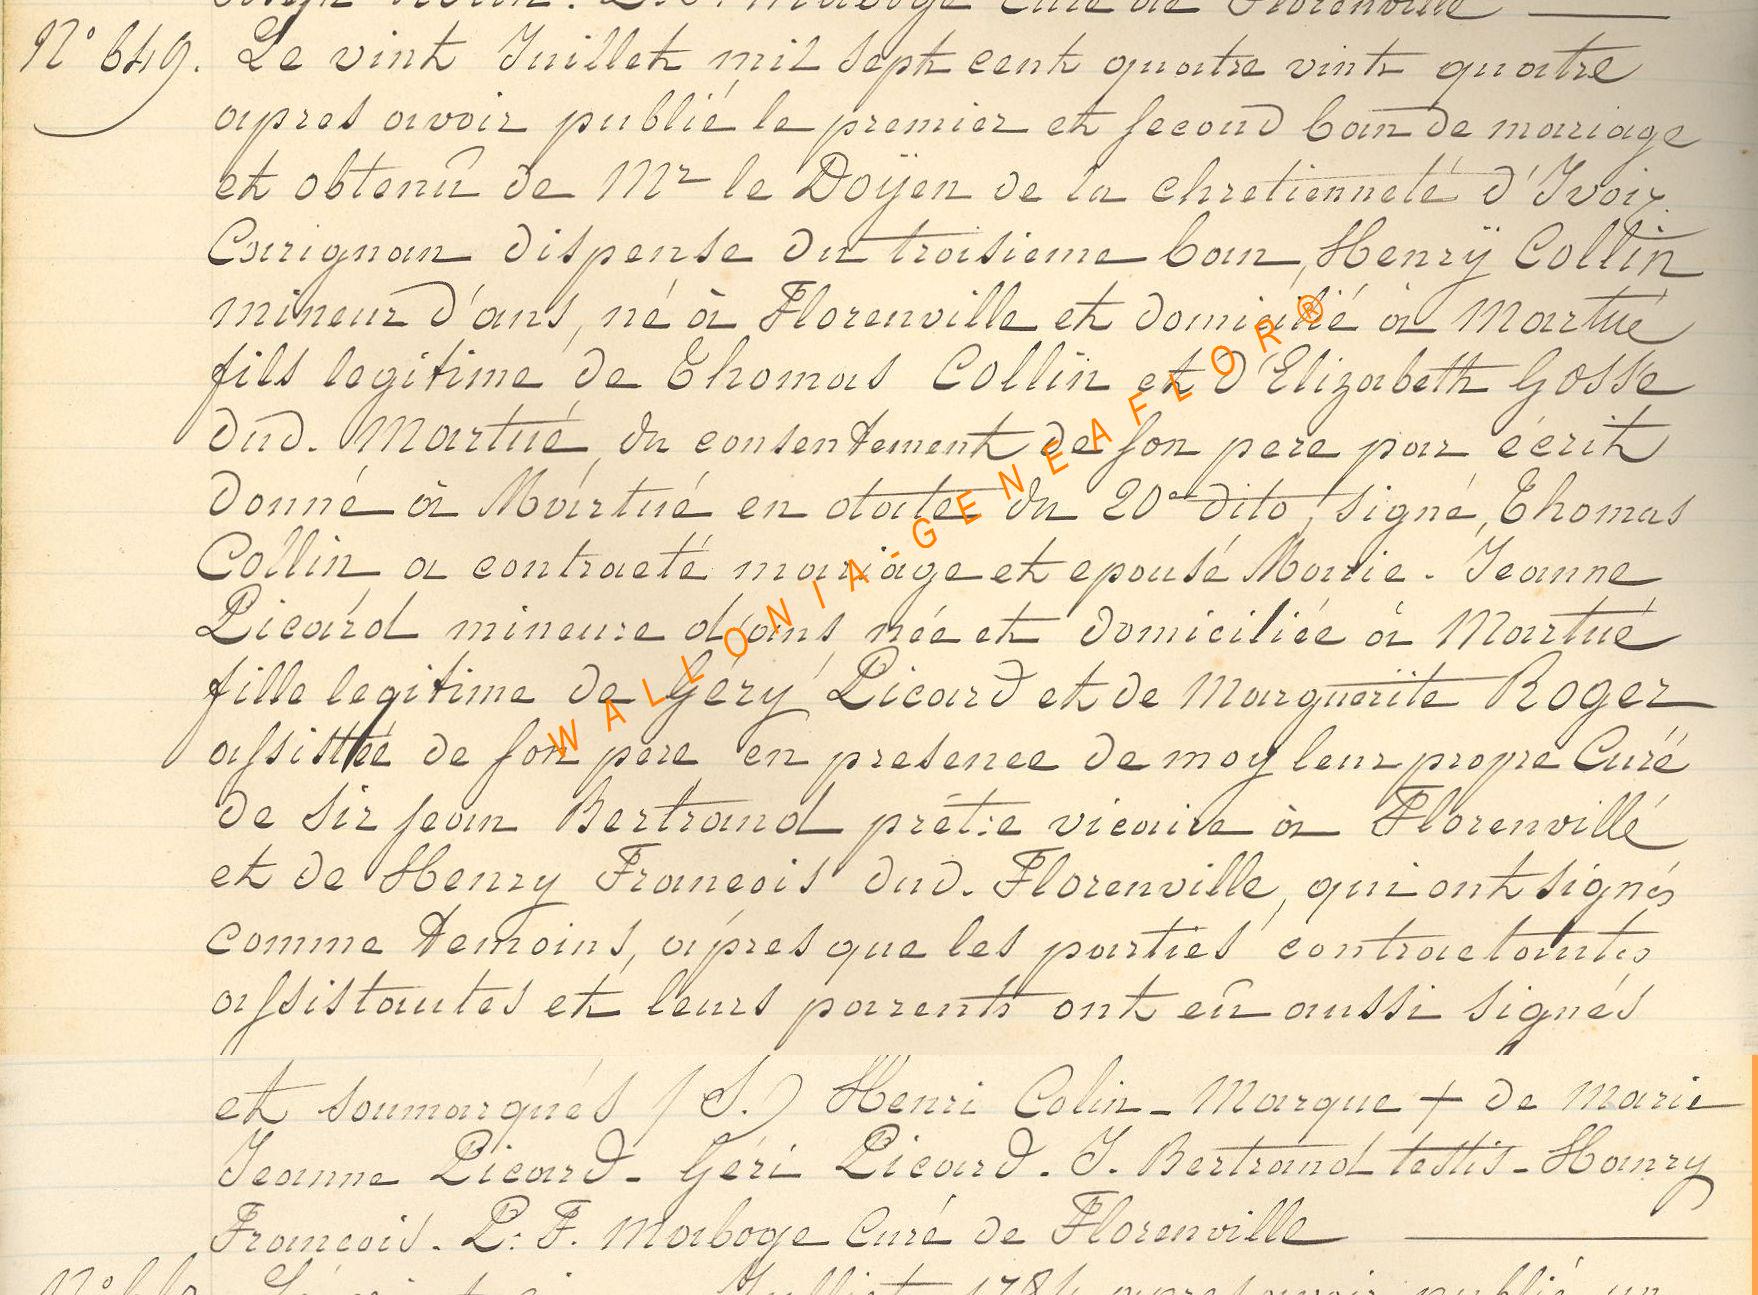 Curé de Florenville
N° 649. Le vint Juillet mil sept cent quatre vint quatre
apres avoir publié le premier et second ban de mariage
et obtenû de Mr le Doÿen de la chretienneté d'Ivoix
Carignan dispense du troisieme ban, Henrÿ Collin
mineur d'ans, né à Florenville et domicilié à Martué
fils legitime de Thomas Collin et d'Elizabeth Gosse
dud. Martué, du consentement de son pere par écrit
donné à Martué en datte du 20e dito, signé, Thomas
Collin a contracté mariage et epousé Marie-Jeanne
Picard mineure d'ans, née et domiciliée à Martué
fille legitime de Géry Picard et de Marguerite Roger
assistée de son pere en presence de moy leur propre Curé
de Sir Jean Bertrand prétre vicaire à Florenville
et de Henry Francois dud. Florenville, qui ont signés
comme temoins, apres que les parties contractantes
assistantes et leurs parents ont eû aussi signés
et soumarqués (S.) Henri Colin - Marque + de Marie
Jeanne Picard - Géri Picard - J. Bertrand testis - Hanry
Francois - P. F. Maboge Curé de Florenville
Juillet 1784 apres avoir publié un
WALLONIA-GENEAFLOR®